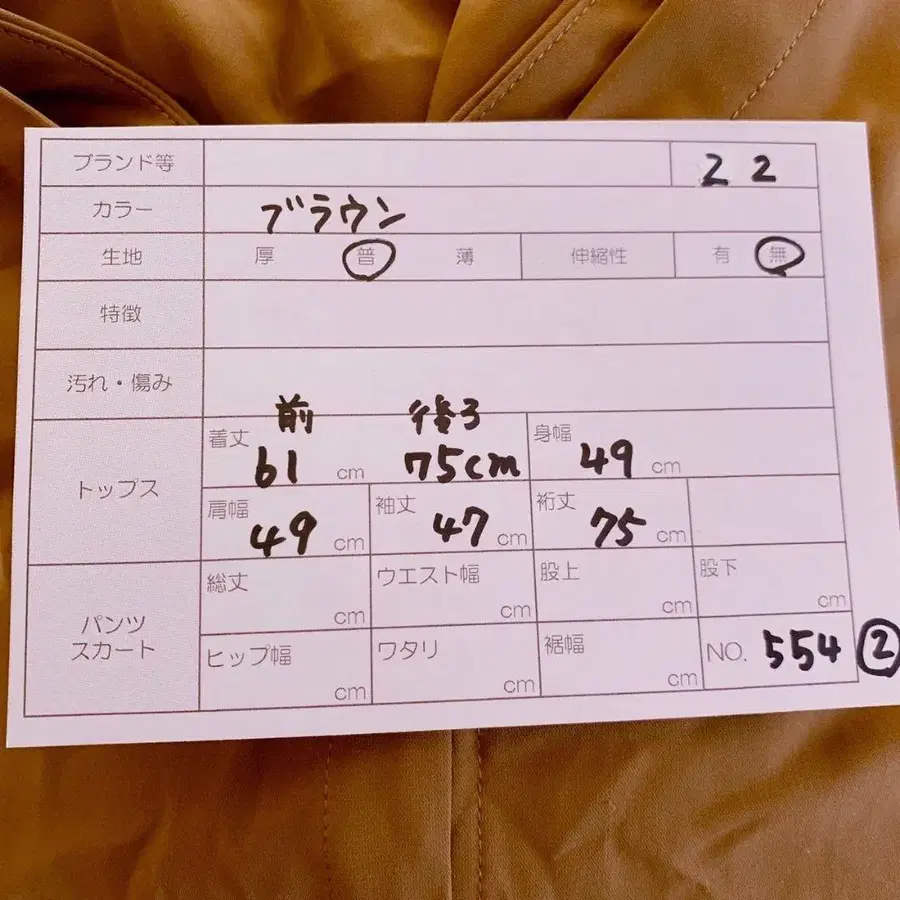 ブランド等 22
カラー ブラウン
生地 厚 普 薄 伸縮性 有 無
特徴
汚れ・傷み
前 後ろ
トップス 着丈 61 cm 75cm 身幅 49 cm
肩幅 49 cm 袖丈 47 cm 裄丈 75 cm
パンツ スカート
総丈 cm ウエスト幅 cm 股上 cm 股下 cm
ヒップ幅 cm ワタリ cm 裾幅 cm NO. 554 ②